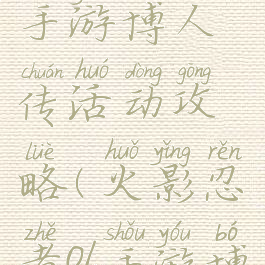 手游博人
chuán huó dòng gōng
传活动攻
lüè huǒ yǐng rěn
略(火影忍
zhě shǒu yóu bó
者OL手游博